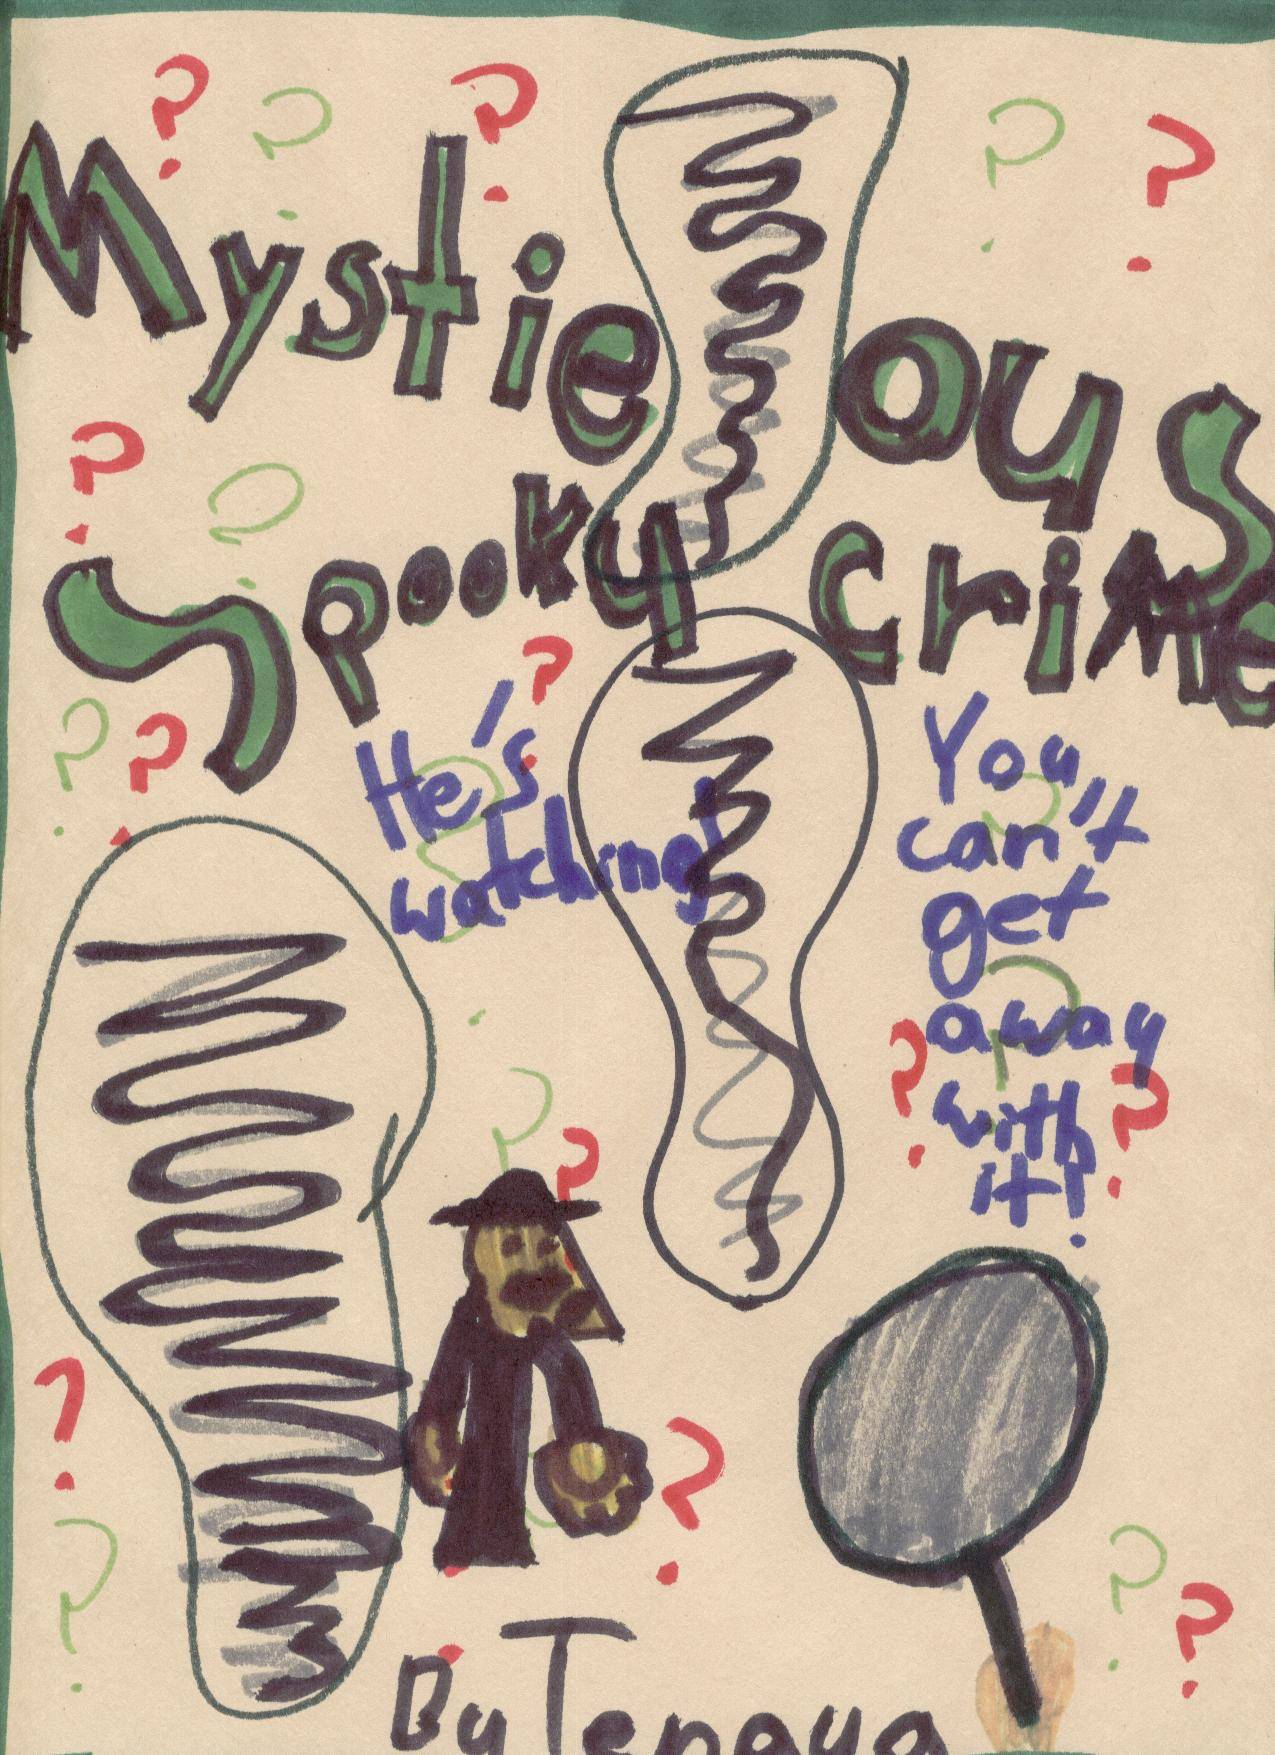 Mystieous
Spooky Crime
He's
watching!
You
can't
get
away
with
it!
By Tenaya